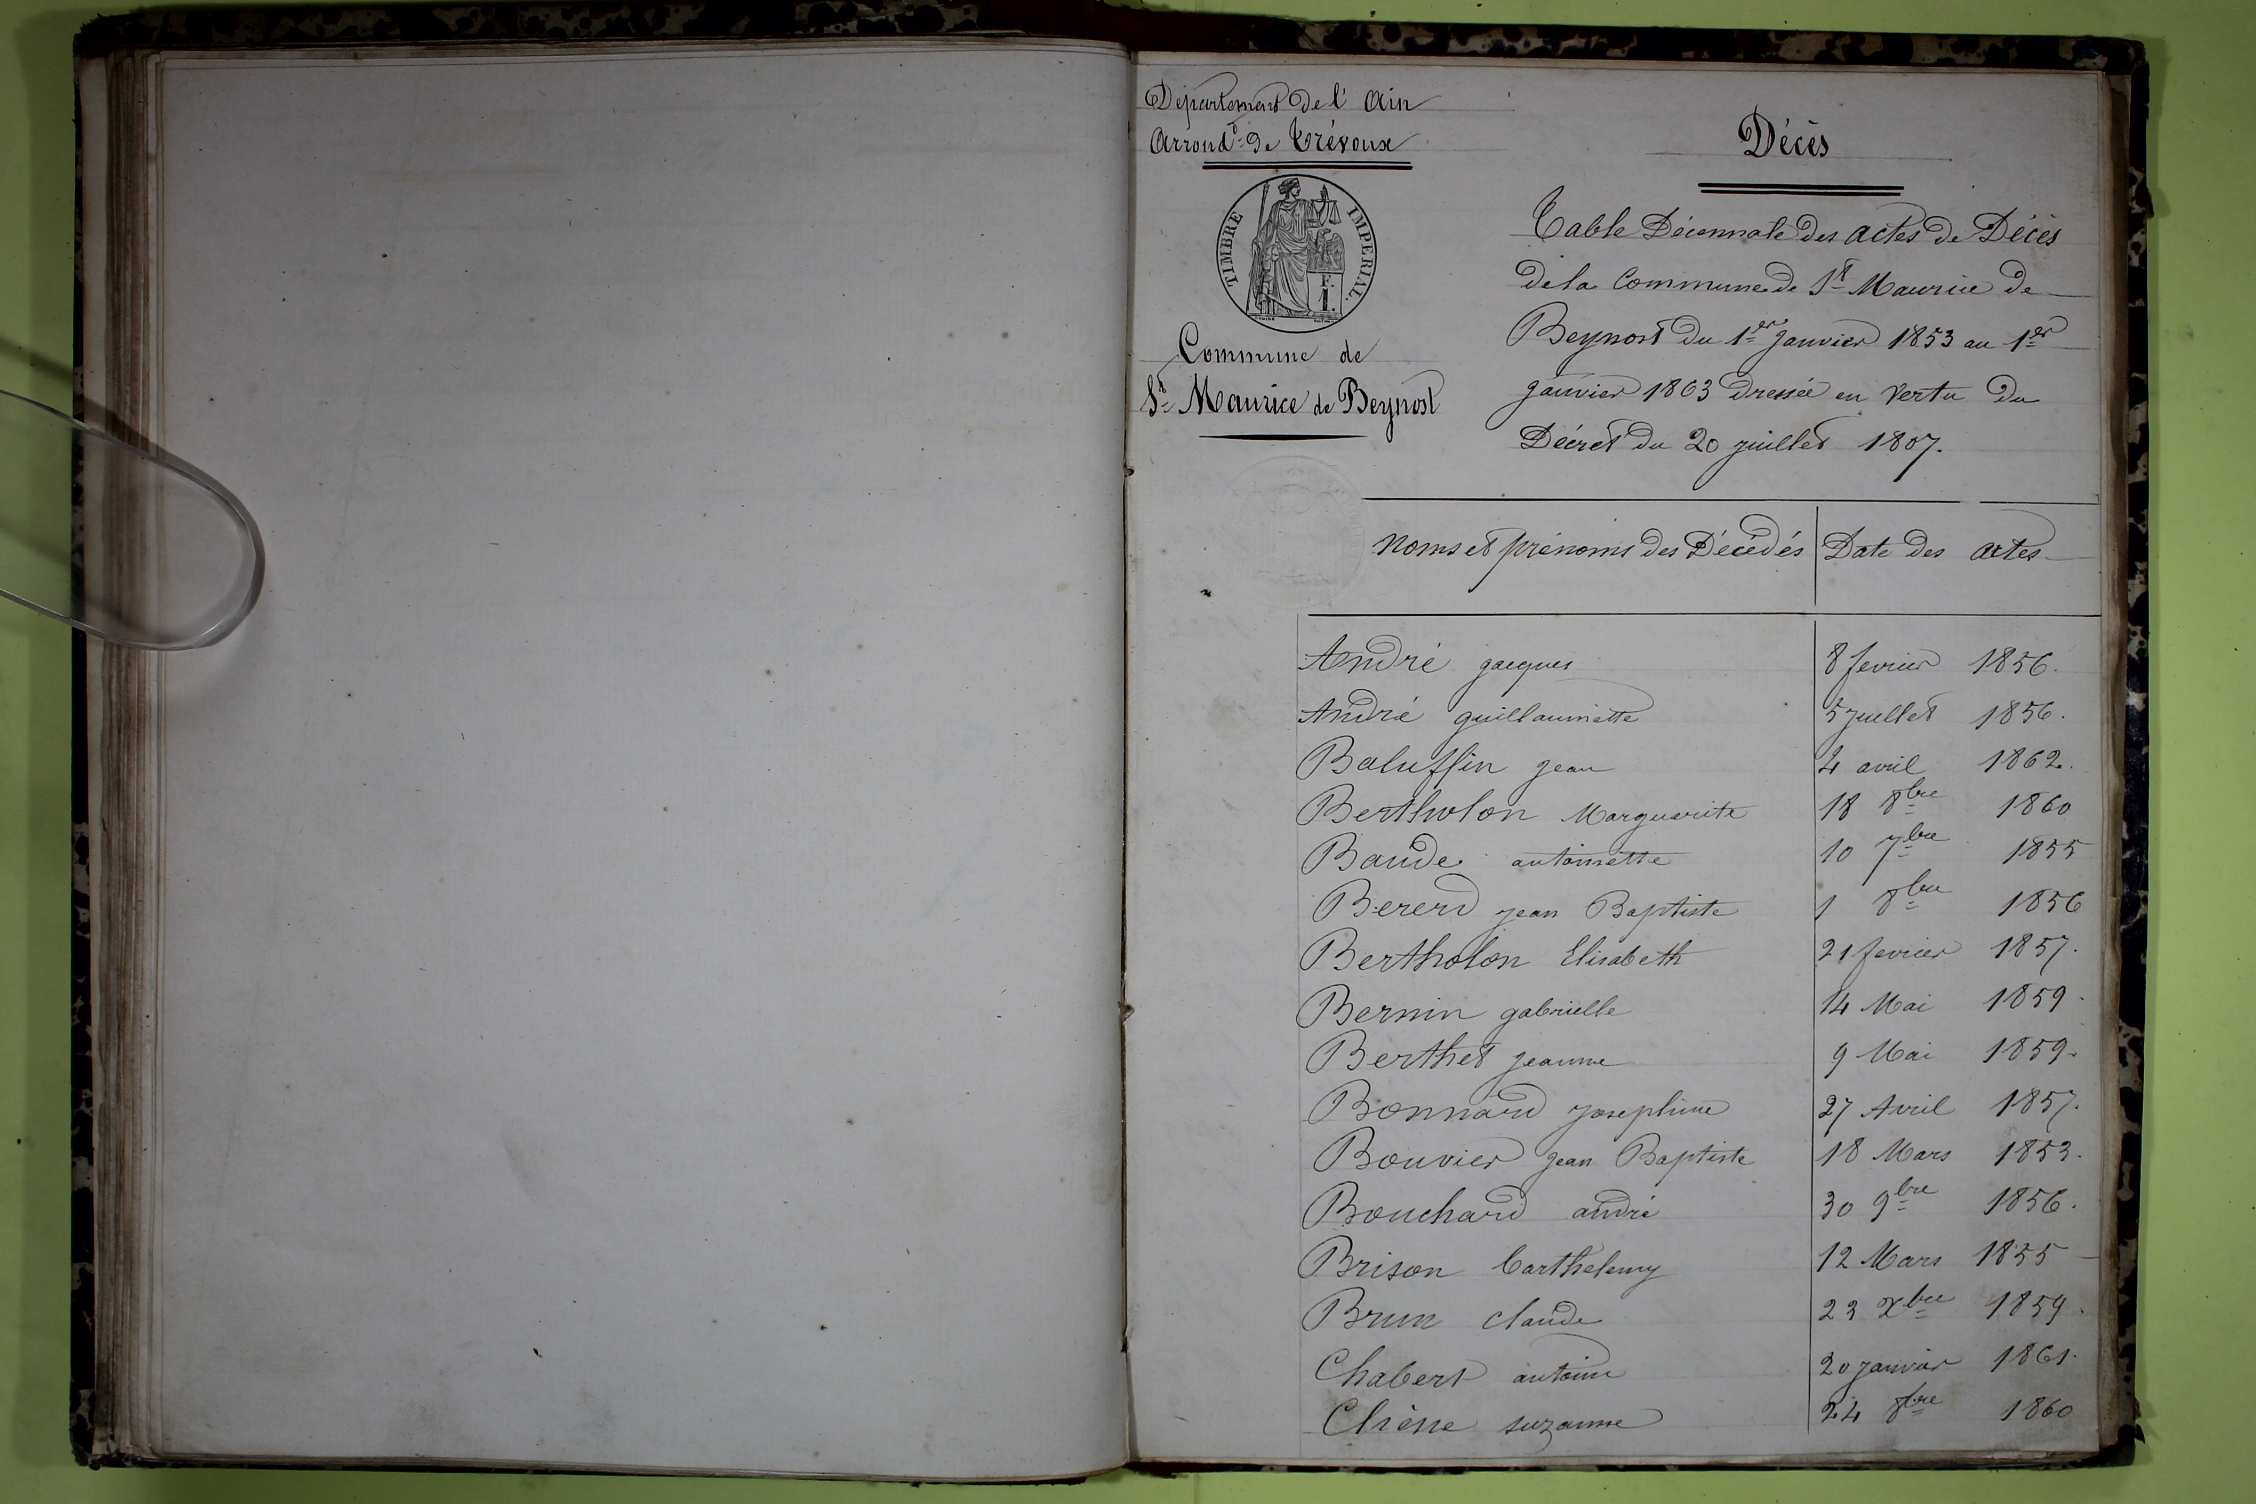 Département de l'Ain
Arrondt de Trévoux
TIMBRE IMPERIAL.
F.
1.
Commune de
St Maurice de Beynost
Décès
Table Décennale des actes de Décès
de la Commune de St Maurice de
Beynost du 1er Janvier 1853 au 1er
Janvier 1863 Dressée en Vertu du
Décret du 20 juillet 1807.
Noms et prénoms des Décédés Date des actes
André jacques 8 fevrier 1856.
André guillaumette 5 juillet 1856.
Baluffin jean 4 avril 1862.
Bertholon Marguerite 18 8bre 1860
Baude antoinette 10 7bre 1855
Bererd jean Baptiste 1 8bre 1856
Bertholon Elisabeth 21 fevrier 1857.
Bernin gabrielle 14 Mai 1859.
Berthet jeanne 9 Mai 1859.
Bonnard josephine 27 Avril 1857.
Bouvier jean Baptiste 18 Mars 1853.
Bouchard andré 30 9bre 1856.
Brison barthelemy 12 Mars 1855
Brun claude 23 Xbre 1859.
Chabert antoine 20 janvier 1861.
Chêne suzanne 24 8bre 1860